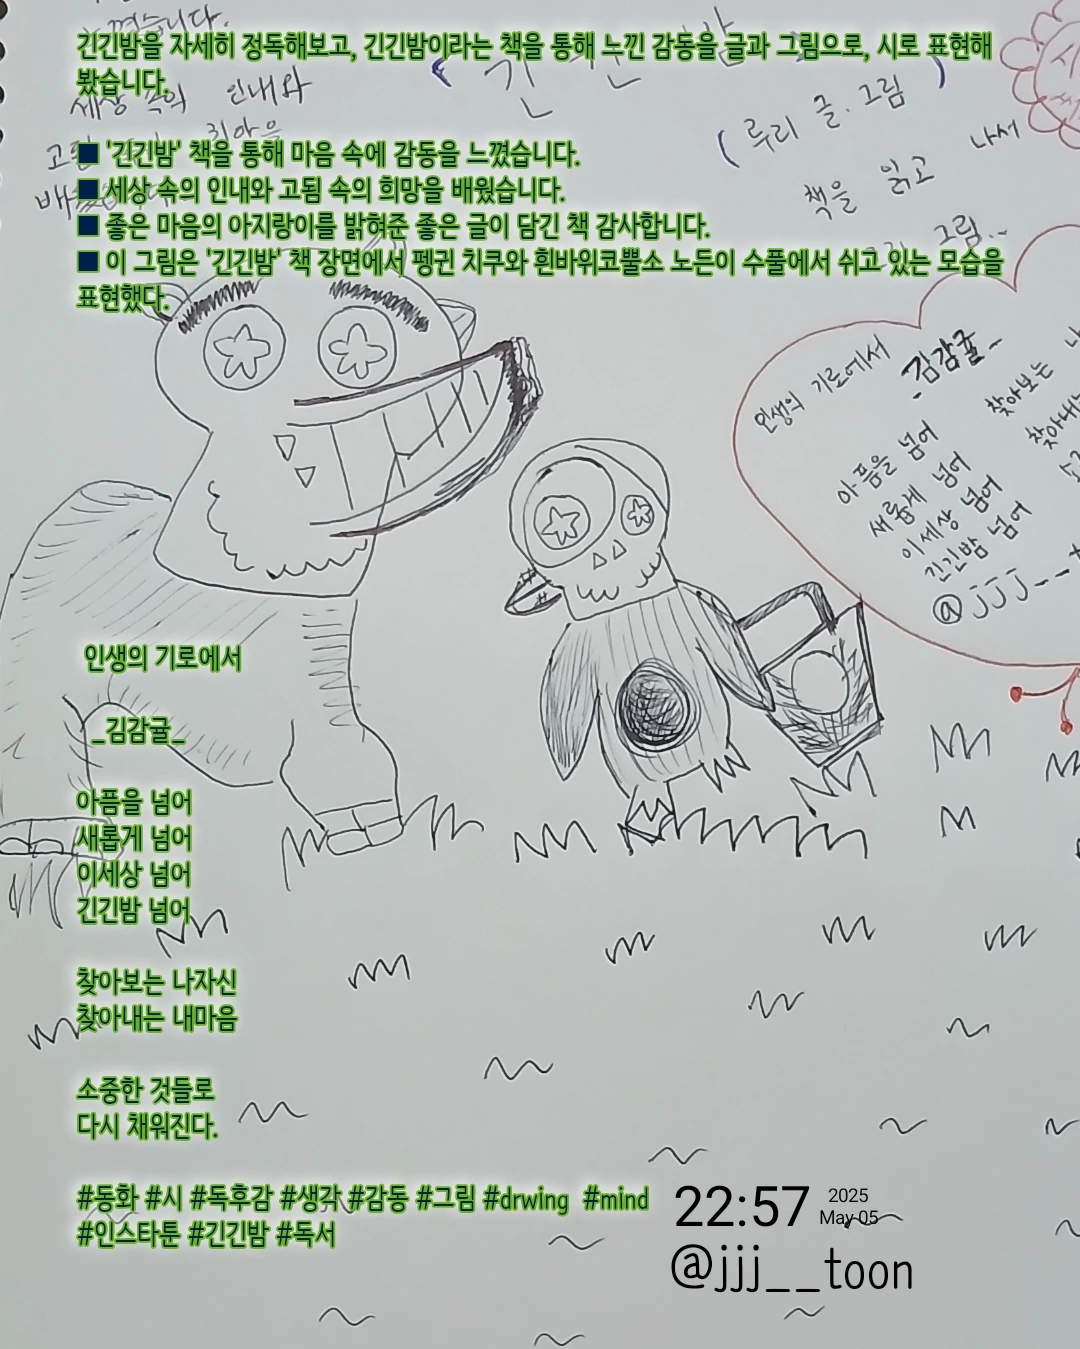 꼈습니다.
긴긴밤을 자세히 정독해보고, 긴긴밤이라는 책을 통해 느낀 감동을 글과 그림으로, 시로 표현해
봤습니다.
세상 속의 인내와
(루리 글.그림
책을 읽고 나서
그림..
■ '긴긴밤' 책을 통해 마음 속에 감동을 느꼈습니다.
■ 세상 속의 인내와 고됨 속의 희망을 배웠습니다.
■ 좋은 마음의 아지랑이를 밝혀준 좋은 글이 담긴 책 감사합니다.
■ 이 그림은 '긴긴밤' 책 장면에서 펭귄 치쿠와 흰바위코뿔소 노든이 수풀에서 쉬고 있는 모습을
표현했다.
인생의 기로에서
-김감귤-
아픔을 넘어
새롭게 넘어
이세상 넘어
긴긴밤 넘어
찾아보는 나
찾아내는
@jjj__t
인생의 기로에서
_김감귤_
아픔을 넘어
새롭게 넘어
이세상 넘어
긴긴밤 넘어
찾아보는 나자신
찾아내는 내마음
소중한 것들로
다시 채워진다.
#동화 #시 #독후감 #생각 #감동 #그림 #drwing #mind
#인스타툰 #긴긴밤 #독서
22:57 2025
May 05
@jjj__toon